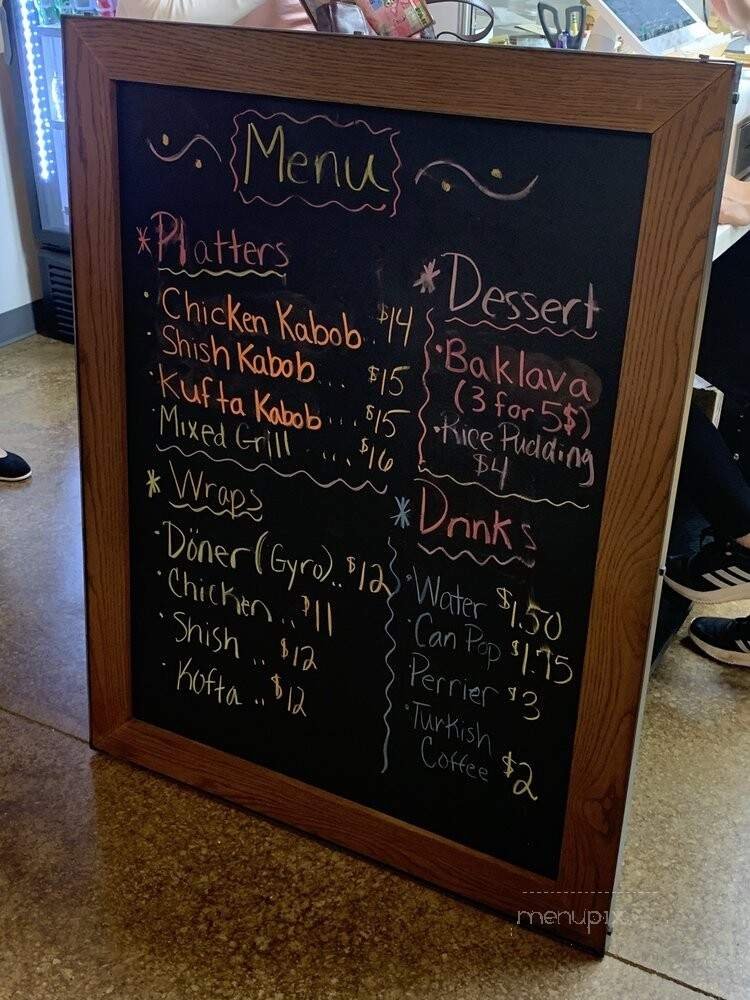 Menu
*Platters
· Chicken Kabob .. $14
· Shish Kabob ... $15
· Kufta Kabob ... $15
· Mixed Grill .... $16
* Wraps
· Döner (Gyro).. $12
· Chicken .. $11
· Shish .. $12
· Kofta .. $12
* Dessert
· Baklava
(3 for 5$)
· Rice Pudding
$4
* Drinks
· Water $1.50
· Can Pop $1.75
· Perrier $3
· Turkish
Coffee $2
menupix